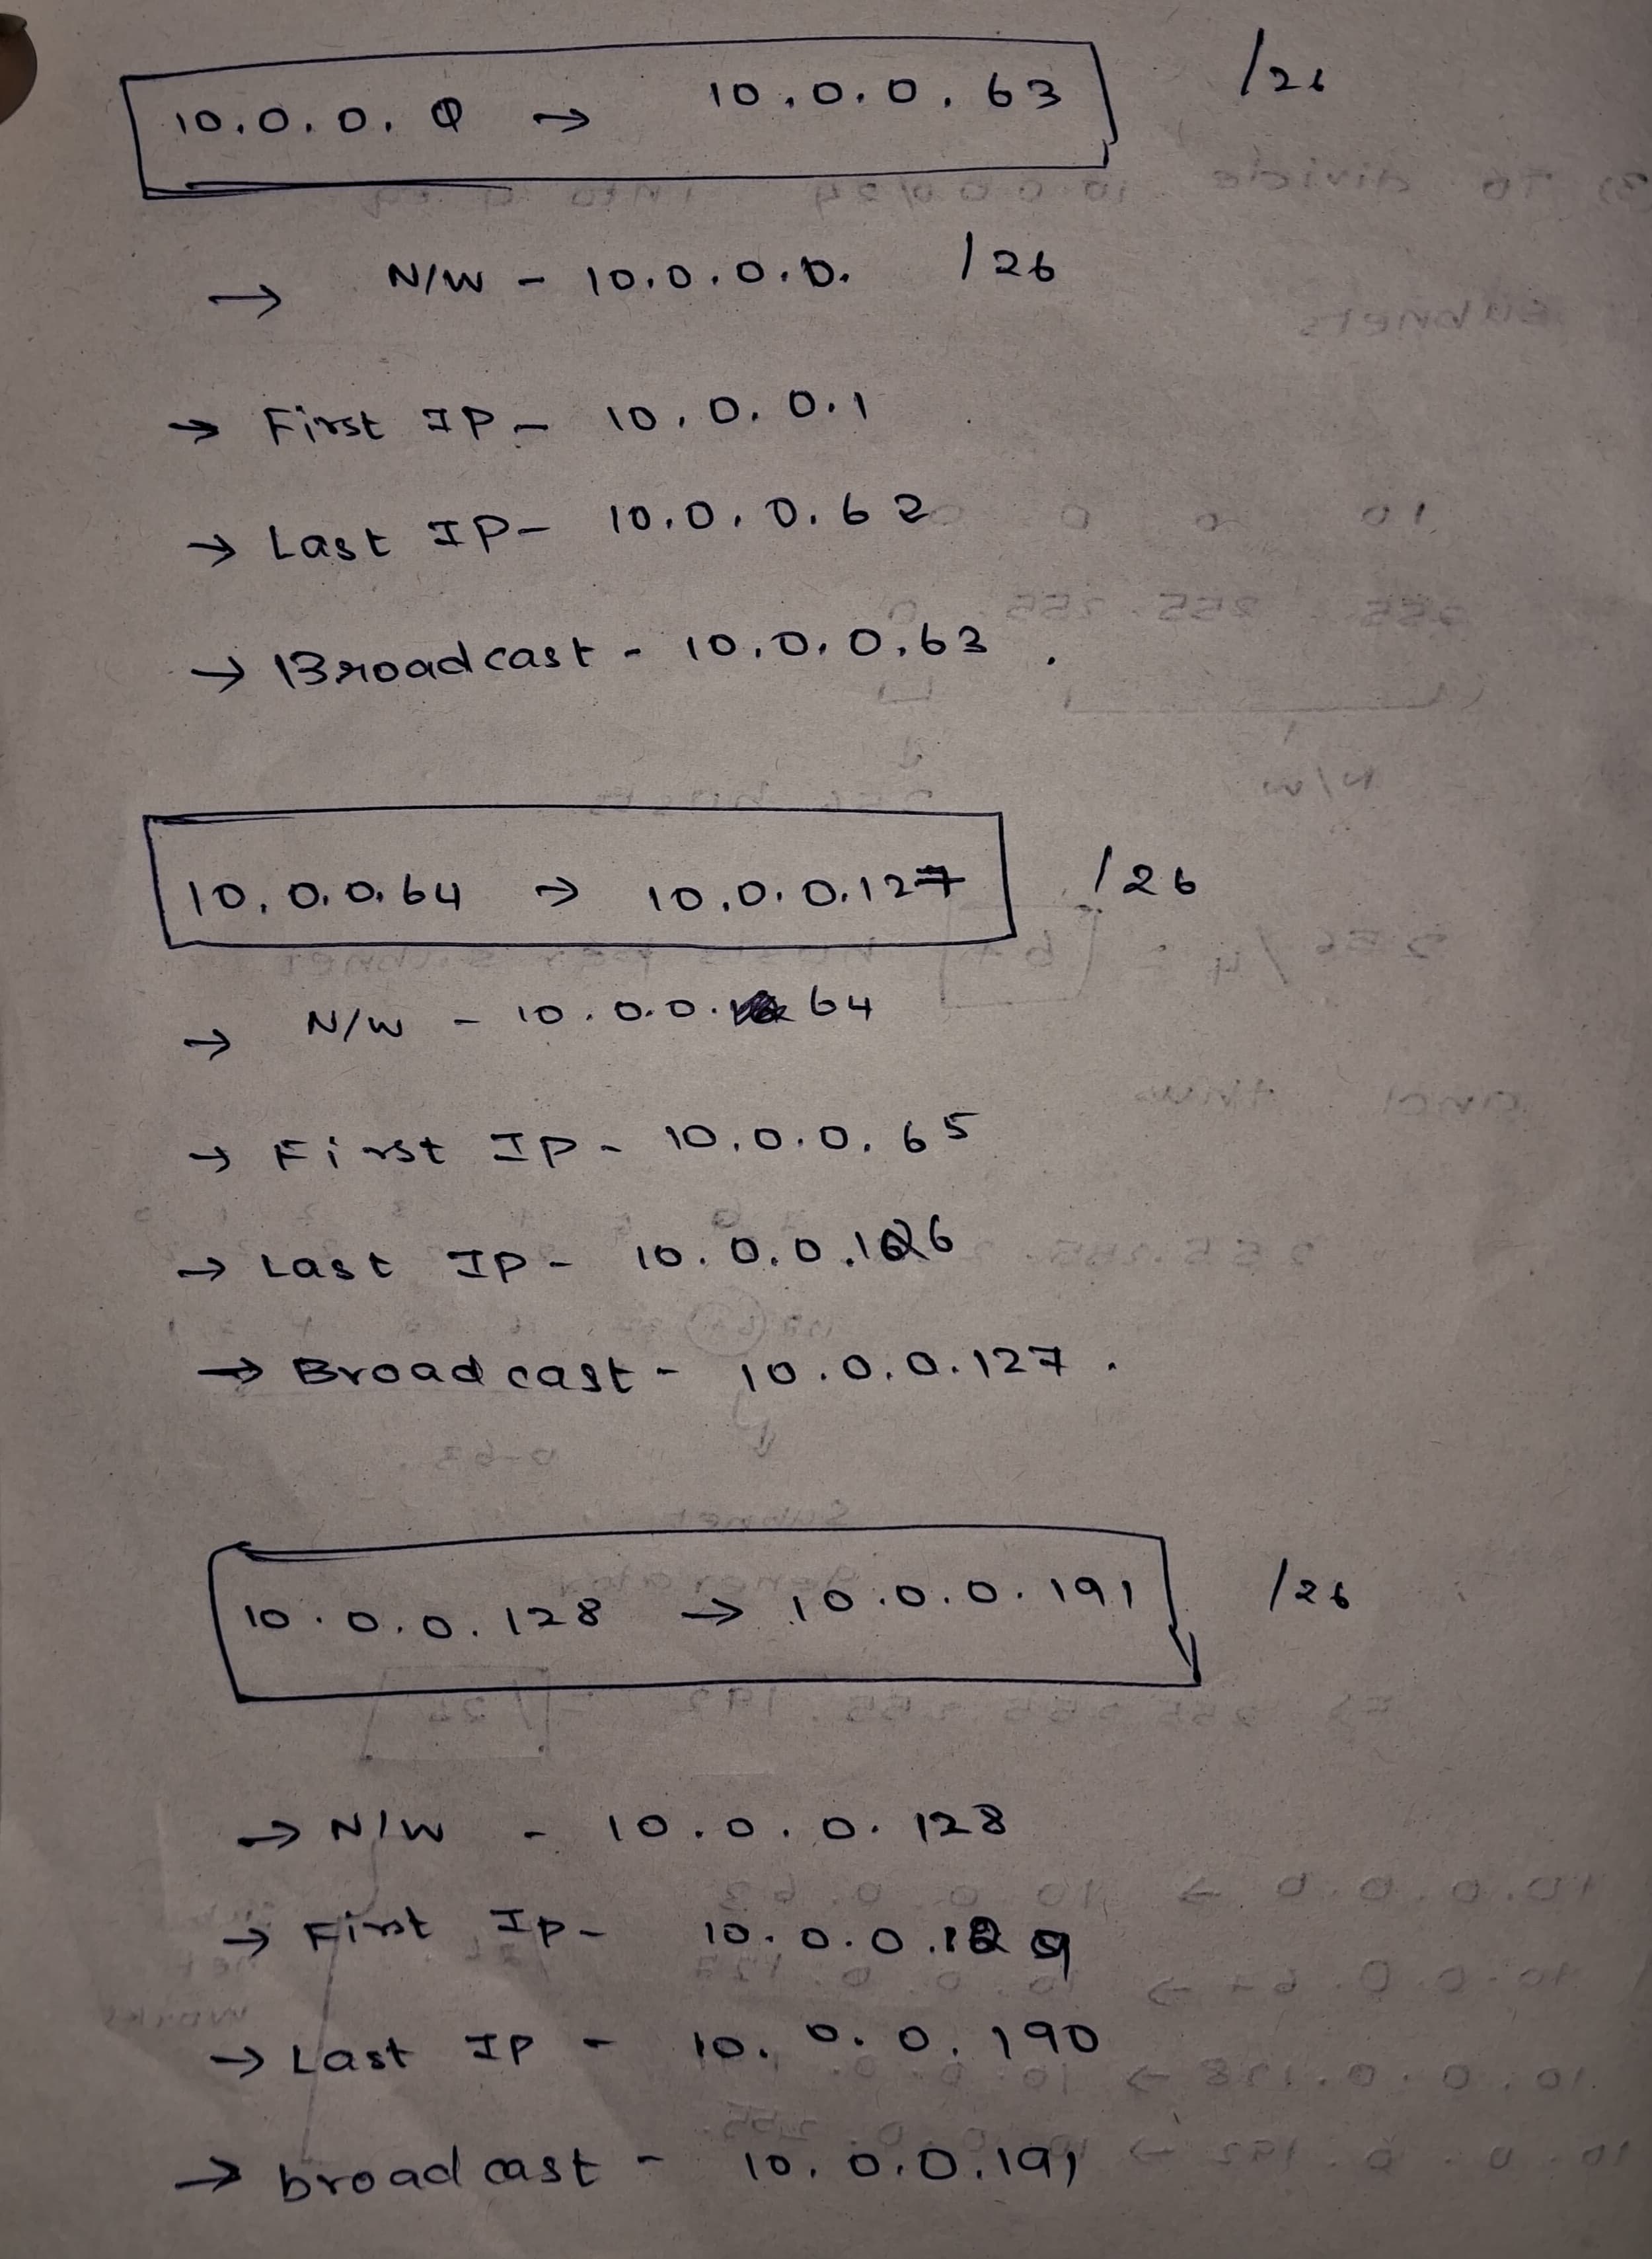 10.0.0.0 → 10.0.0.63 /26
→ N/W - 10.0.0.0. /26
→ First IP - 10.0.0.1
→ Last IP - 10.0.0.62
→ Broadcast - 10.0.0.63.
10.0.0.64 → 10.0.0.127 /26
→ N/W - 10.0.0.64
→ First IP - 10.0.0.65
→ Last IP - 10.0.0.126
→ Broadcast - 10.0.0.127.
10.0.0.128 → 10.0.0.191 /26
→ N/W - 10.0.0.128
→ First Ip - 10.0.0.129
→ Last IP - 10.0.0.190
→ broadcast - 10.0.0.191